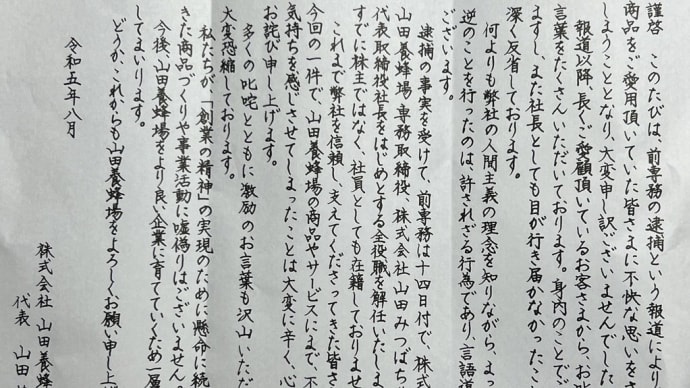 謹啓　このたびは、前専務の逮捕という報道により
商品をご愛用頂いていた皆さまに不快な思いを
しまうこととなり、大変申し訳ございませんでした
報道以降、長くご愛顧頂いているお客さまから、お
言葉をたくさんいただいております。身内のことで
ますし、また社長としても目が行き届かなかったこ
深く反省しております。
何よりも弊社の人間主義の理念を知りながら、まっ
逆のことを行ったのは、許されざる行為であり、言語道
ございます。
逮捕の事実を受けて、前専務は十四日付で、株式
山田養蜂場　専務取締役、株式会社山田みつばち
代表取締役社長をはじめとする全役職を解任いたしま
すでに株主ではなく、社員としても在籍しておりませ
これまで弊社を信頼し、支えてくださってきた皆さ
今回の一件で、山田養蜂場の商品やサービスにまで、不
気持ちを感じさせてしまったことは大変に辛く、心
お詫び申し上げます。
多くの叱咤とともに激励のお言葉も沢山いただ
大変恐縮しております。
私たちが、「創業の精神」の実現のために懸命に続
きた商品づくりや事業活動に嘘偽りはございません
今後、山田養蜂場をより良い企業に育てていくため一層
してまいります。
どうか、これからも山田養蜂場をよろしくお願い申し上
令和五年八月
株式会社　山田養蜂
代表　山田